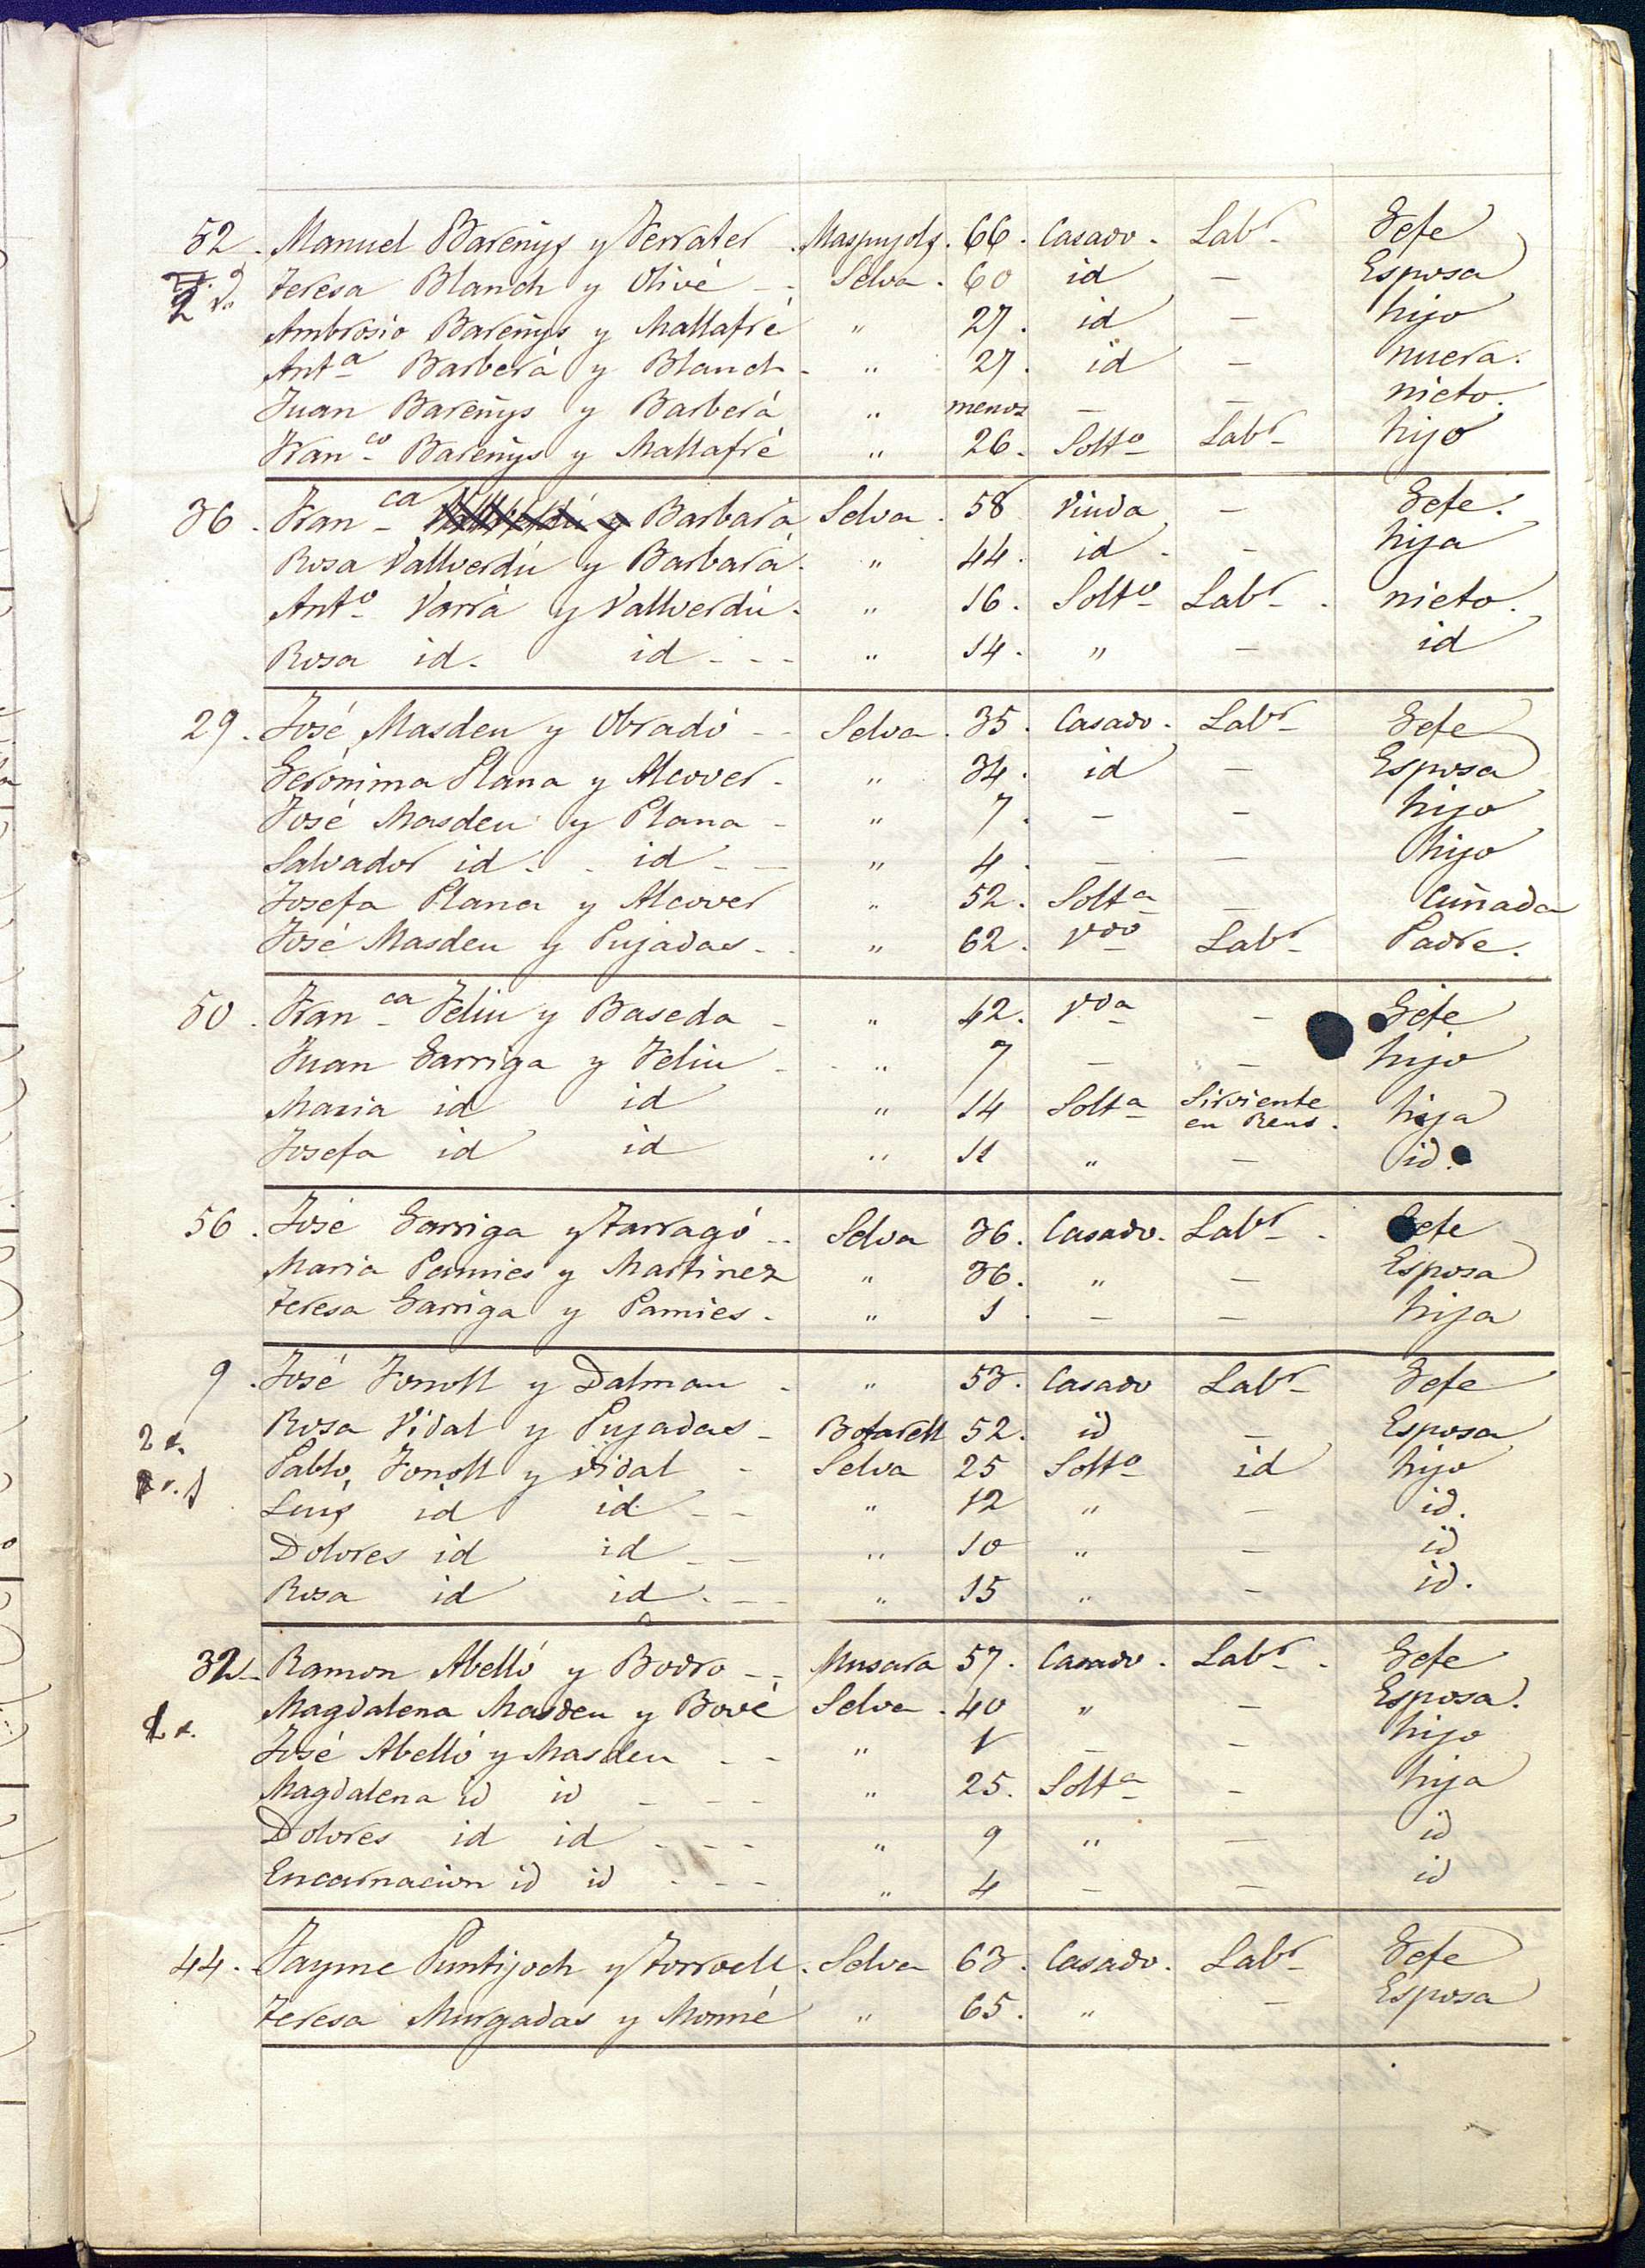 52. Manuel Bareñys y Ferrater. Maspujols. 66. Casado. Labr. Gefe
Teresa Blanch y Olivé -- Selva. 60 id — Esposa
Ambrosio Bareñys y Mallafré " 27. id — hijo
Anta Barberá y Blanch - " 27. id — nuera.
Juan Bareñys y Barberá " menos — — nieto.
Franco Bareñys y Mallafré " 26. Solto Labr hijo
36. Franca Barbará Selva. 58 Viuda — Gefe.
Rosa Vallverdú y Barbará. " 44. id. — hija
Anto Varrá y Vallverdú. " 16. Solto Labr. nieto.
Rosa id. id --- " 14. " — id
29. José Masdeu y Obradó -- Selva. 35. Casado. Labr Gefe
Gerónima Plana y Alcover - " 34. id — Esposa
José Masdeu y Plana - " 7. — — hijo
Salvador id. id -- " 4. — — hijo
Josefa Plana y Alcover " 52. Solta — Cuñada
José Masdeu y Pujadas -. " 62. Vdo Labr Padre.
50. Franca Feliu y Baseda - " 42. Vda — Gefe
Juan Garriga y Feliu - " 7 — — hijo
Maria id id " 14 Solta Sirviente en Reus. hija
Josefa id id " 11 " — id.
56. José Garriga y Tarragó -- Selva 36. Casado. Labr. Gefe
Maria Pamies y Martinez " 36. " — Esposa
Teresa Garriga y Pamies - " 1. — — hija
9. José Fonoll y Dalmau - " 53. Casado Labr Gefe
Rosa Vidal y Pujadas - Botarell 52. id — Esposa
Pablo Fonoll y Vidal - Selva 25 Solto id hijo
Luis id id -- " 12 " — id.
Dolores id id -- " 10 " — id
Rosa id id. -- " 15 " — id.
32 Ramon Abelló y Bodro -- Musara 57. Casado. Labr. Gefe
Magdalena Masdeu y Bové Selva. 40 " — Esposa.
José Abelló y Masdeu -- " 1 — — hijo
Magdalena id id --- " 25. Solta — hija
Dolores id id --- " 9 " — id
Encarnacion id id --- " 4 — — id
44. Jayme Puntijoch y Torroell. Selva 63. Casado. Labr Gefe
Teresa Murgadas y Monné " 65. " — Esposa